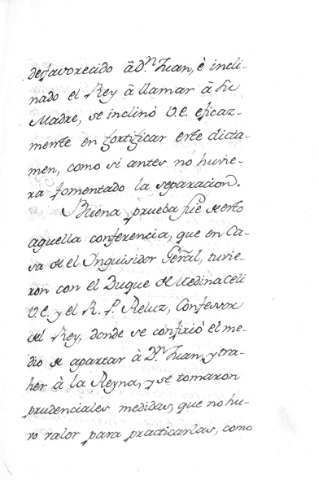 desfavorecido à Dⁿ Juan, è incli-
nado el Rey à llamar à su
Madre, se inclinó V.E. eficaz-
mente en fortificar este dicta-
men, como si antes no huvie-
ra fomentado la separacion.
Buena prueba fue de esto
aquella conferencia, que en Ca-
sa de el Inquisidor Gēral, tuvie-
ron con el Duque de Medina Celi
V.E. y el R. P. Reluz, Confessor
del Rey, donde se confirió el me-
dio de apartar à Dⁿ Juan, y tra-
her à la Reyna, y se tomaron
prudenciales medidas, que no hu-
vo valor para practicarlas, como